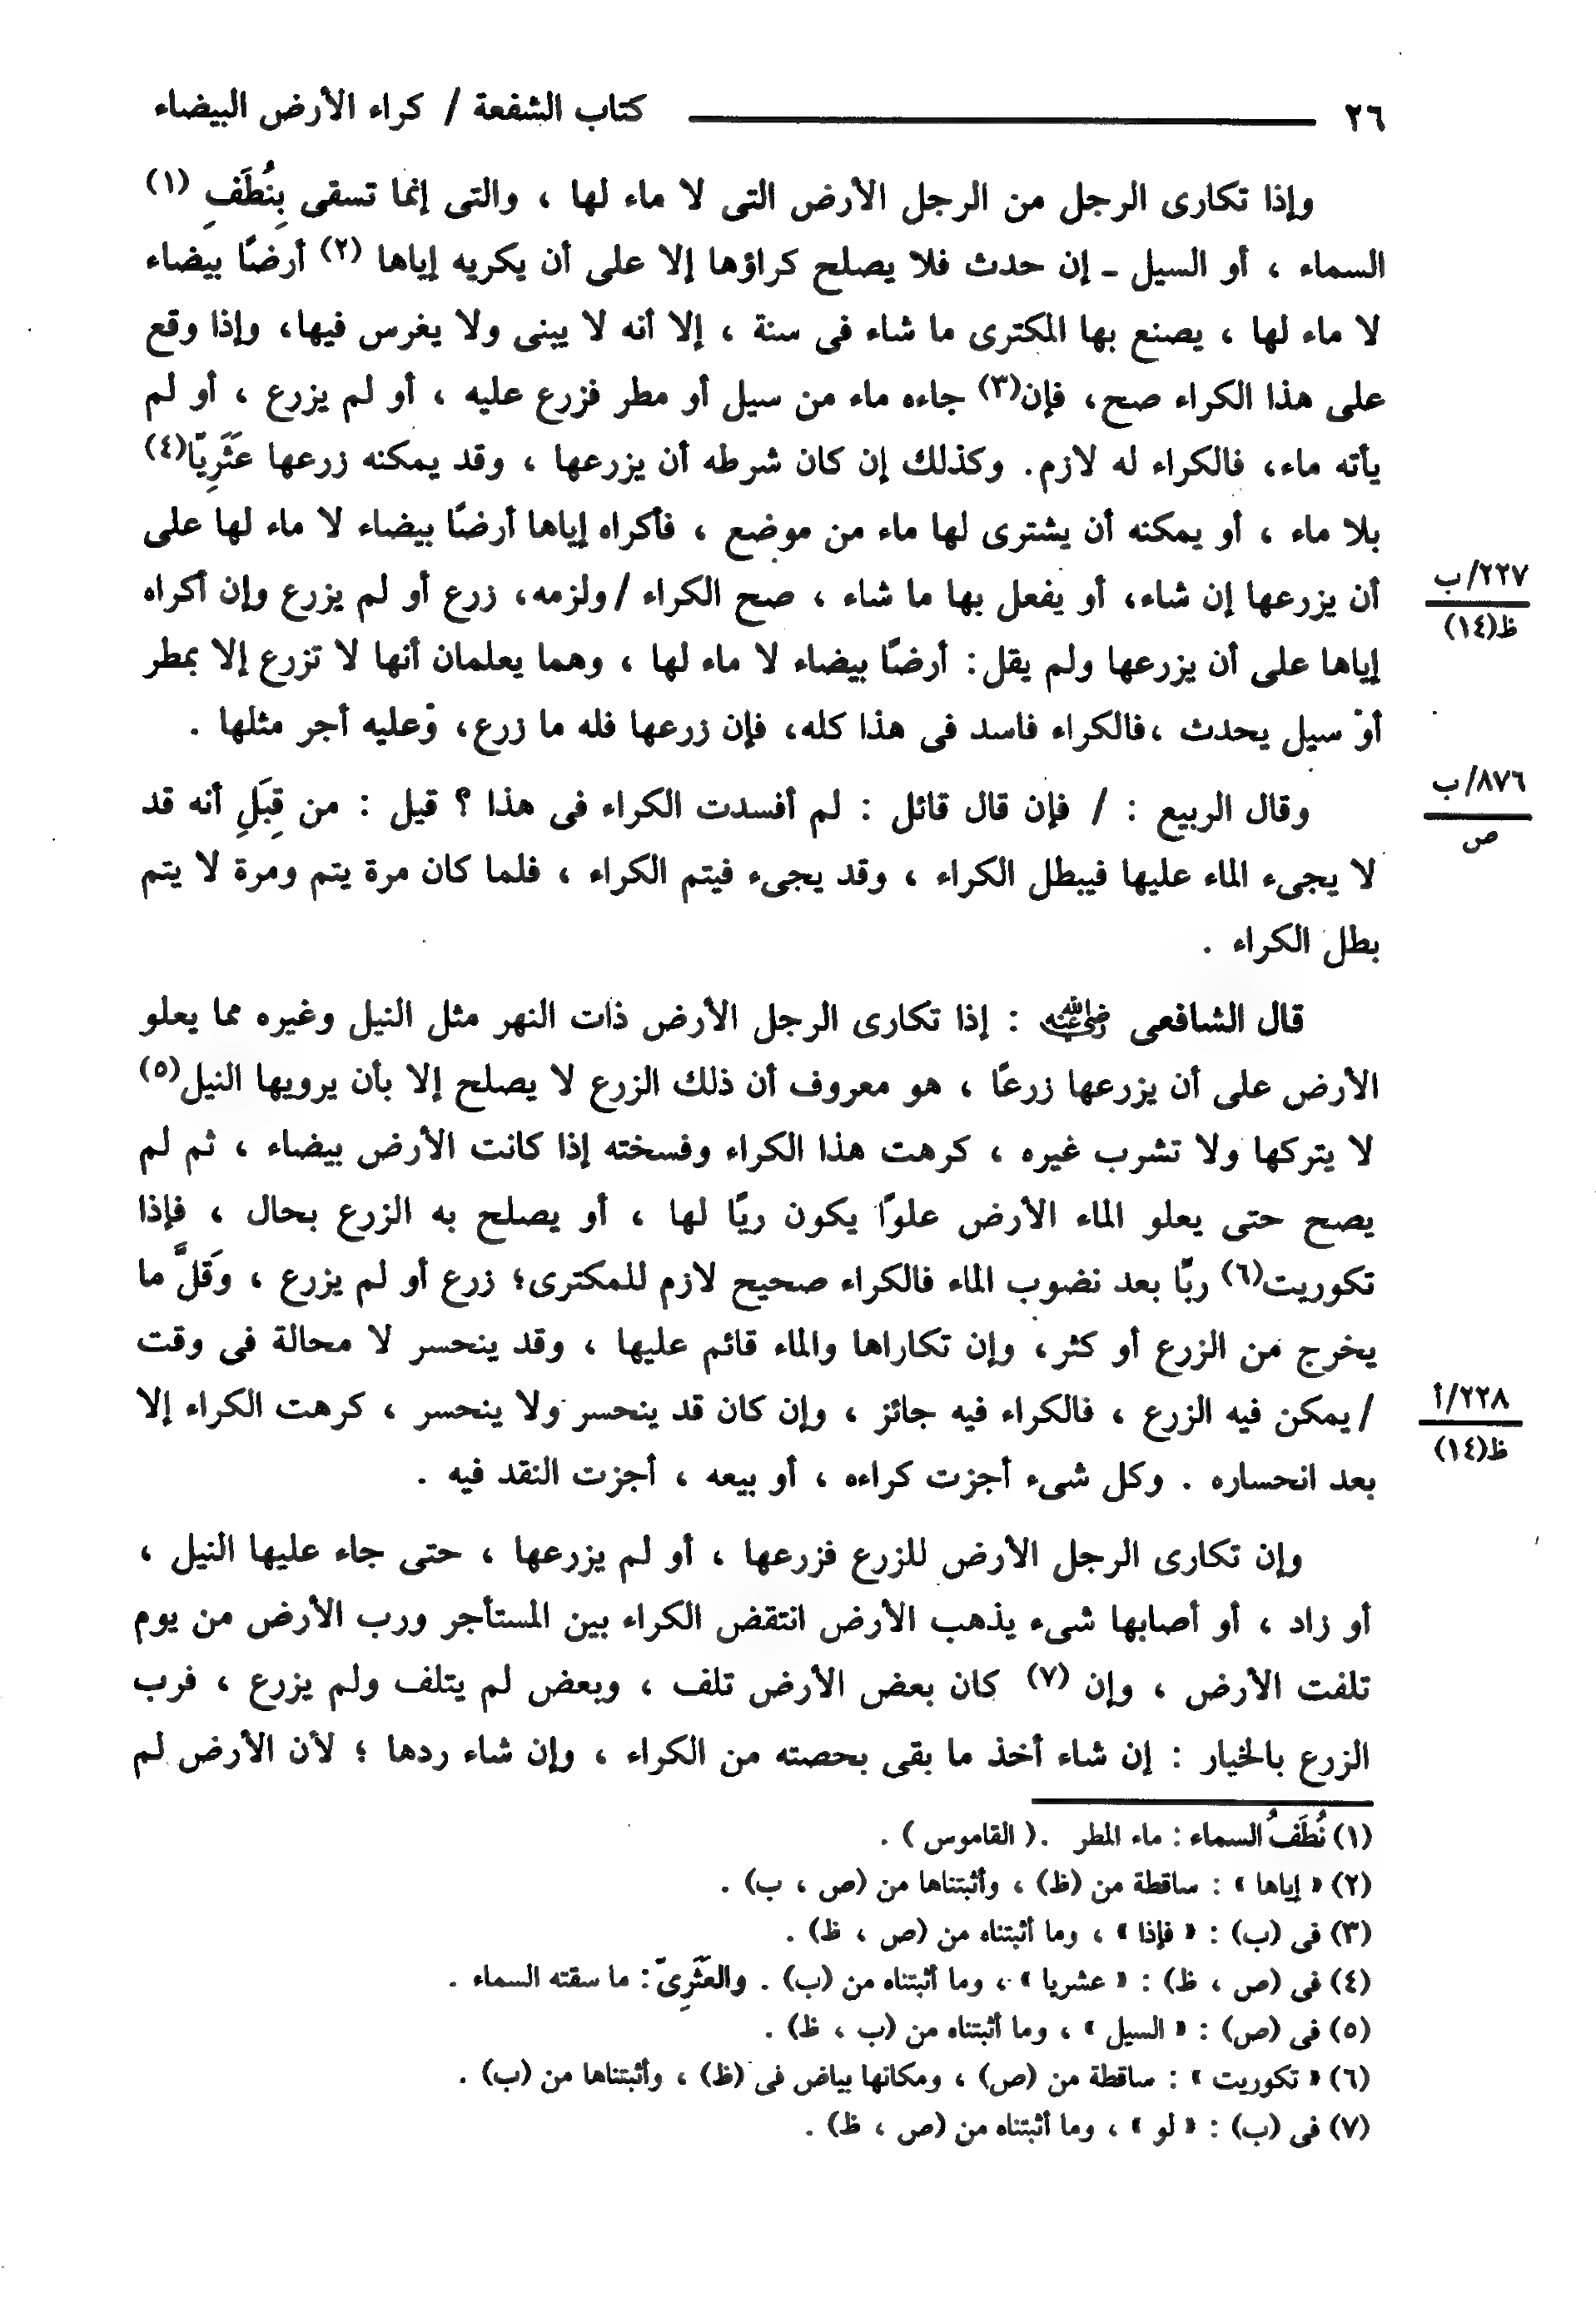 ٢٦ كتاب الشفعة / كراء الأرض البيضاء
وإذا تكارى الرجل من الرجل الأرض التى لا ماء لها ، والتى إنما تسقى بِنُطَفِ (١)
السماء ، أو السيل ـ إن حدث فلا يصلح كراؤها إلا على أن يكريه إياها (٢) أرضًا بيضاء
لا ماء لها ، يصنع بها المكترى ما شاء فى سنة ، إلا أنه لا يبنى ولا يغرس فيها، وإذا وقع
على هذا الكراء صح، فإن(٣) جاءه ماء من سيل أو مطر فزرع عليه ، أو لم يزرع ، أو لم
يأته ماء، فالكراء له لازم. وكذلك إن كان شرطه أن يزرعها ، وقد يمكنه زرعها عَثَرِيّا(٤)
بلا ماء ، أو يمكنه أن يشترى لها ماء من موضع ، فأكراه إياها أرضًا بيضاء لا ماء لها على
أن يزرعها إن شاء، أو يفعل بها ما شاء ، صح الكراء /ولزمه، زرع أو لم يزرع وإن أكراه
٢٢٧/ب
ظ(١٤)
إياها على أن يزرعها ولم يقل: أرضًا بيضاء لا ماء لها ، وهما يعلمان أنها لا تزرع إلا بمطر
أو سيل يحدث ،فالكراء فاسد فى هذا كله، فإن زرعها فله ما زرع، وعليه أجر مثلها .
وقال الربيع : / فإن قال قائل : لم أفسدت الكراء فى هذا ؟ قيل : من قِبَلِ أنه قد
٨٧٦/ب
ص
لا يجىء الماء عليها فيبطل الكراء ، وقد يجىء فيتم الكراء ، فلما كان مرة يتم ومرة لا يتم
بطل الكراء .
قال الشافعى رضي الله عنه : إذا تكارى الرجل الأرض ذات النهر مثل النيل وغيره مما يعلو
الأرض على أن يزرعها زرعًا ، هو معروف أن ذلك الزرع لا يصلح إلا بأن يرويها النيل(٥)
لا يتركها ولا تشرب غيره ، كرهت هذا الكراء وفسخته إذا كانت الأرض بيضاء ، ثم لم
يصح حتى يعلو الماء الأرض علوًا يكون ريًا لها ، أو يصلح به الزرع بحال ، فإذا
تكوريت(٦) ريًا بعد نضوب الماء فالكراء صحيح لازم للمكترى؛ زرع أو لم يزرع ، وَقَلَّ ما
يخرج من الزرع أو كثر، وإن تكاراها والماء قائم عليها ، وقد ينحسر لا محالة فى وقت
/يمكن فيه الزرع ، فالكراء فيه جائز ، وإن كان قد ينحسر ولا ينحسر ، كرهت الكراء إلا
٢٢٨/أ
ظ(١٤)
بعد انحساره . وكل شىء أجزت كراءه ، أو بيعه ، أجزت النقد فيه .
وإن تكارى الرجل الأرض للزرع فزرعها ، أو لم يزرعها ، حتى جاء عليها النيل ،
أو زاد ، أو أصابها شىء يذهب الأرض انتقض الكراء بين المستأجر ورب الأرض من يوم
تلفت الأرض ، وإن (٧) كان بعض الأرض تلف ، وبعض لم يتلف ولم يزرع ، فرب
الزرع بالخيار : إن شاء أخذ ما بقى بحصته من الكراء ، وإن شاء ردها ؛ لأن الأرض لم
(١) نُطَفُ السماء : ماء المطر .( القاموس ) .
(٢) « إياها » : ساقطة من (ظ) ، وأثبتناها من (ص ، ب) .
(٣) فى (ب) : « فإذا » ، وما أثبتناه من (ص ، ظ) .
(٤) فى (ص ، ظ) : « عشريا » ، وما أثبتناه من (ب) . والعَثَرِىّ : ما سقته السماء .
(٥) فى (ص) : « السيل » ، وما أثبتناه من (ب ، ظ) .
(٦) « تكوريت » : ساقطة من (ص) ، ومكانها بياض فى (ظ) ، وأثبتناها من (ب) .
(٧) فى (ب) : « لو » ، وما أثبتناه من (ص ، ظ) .